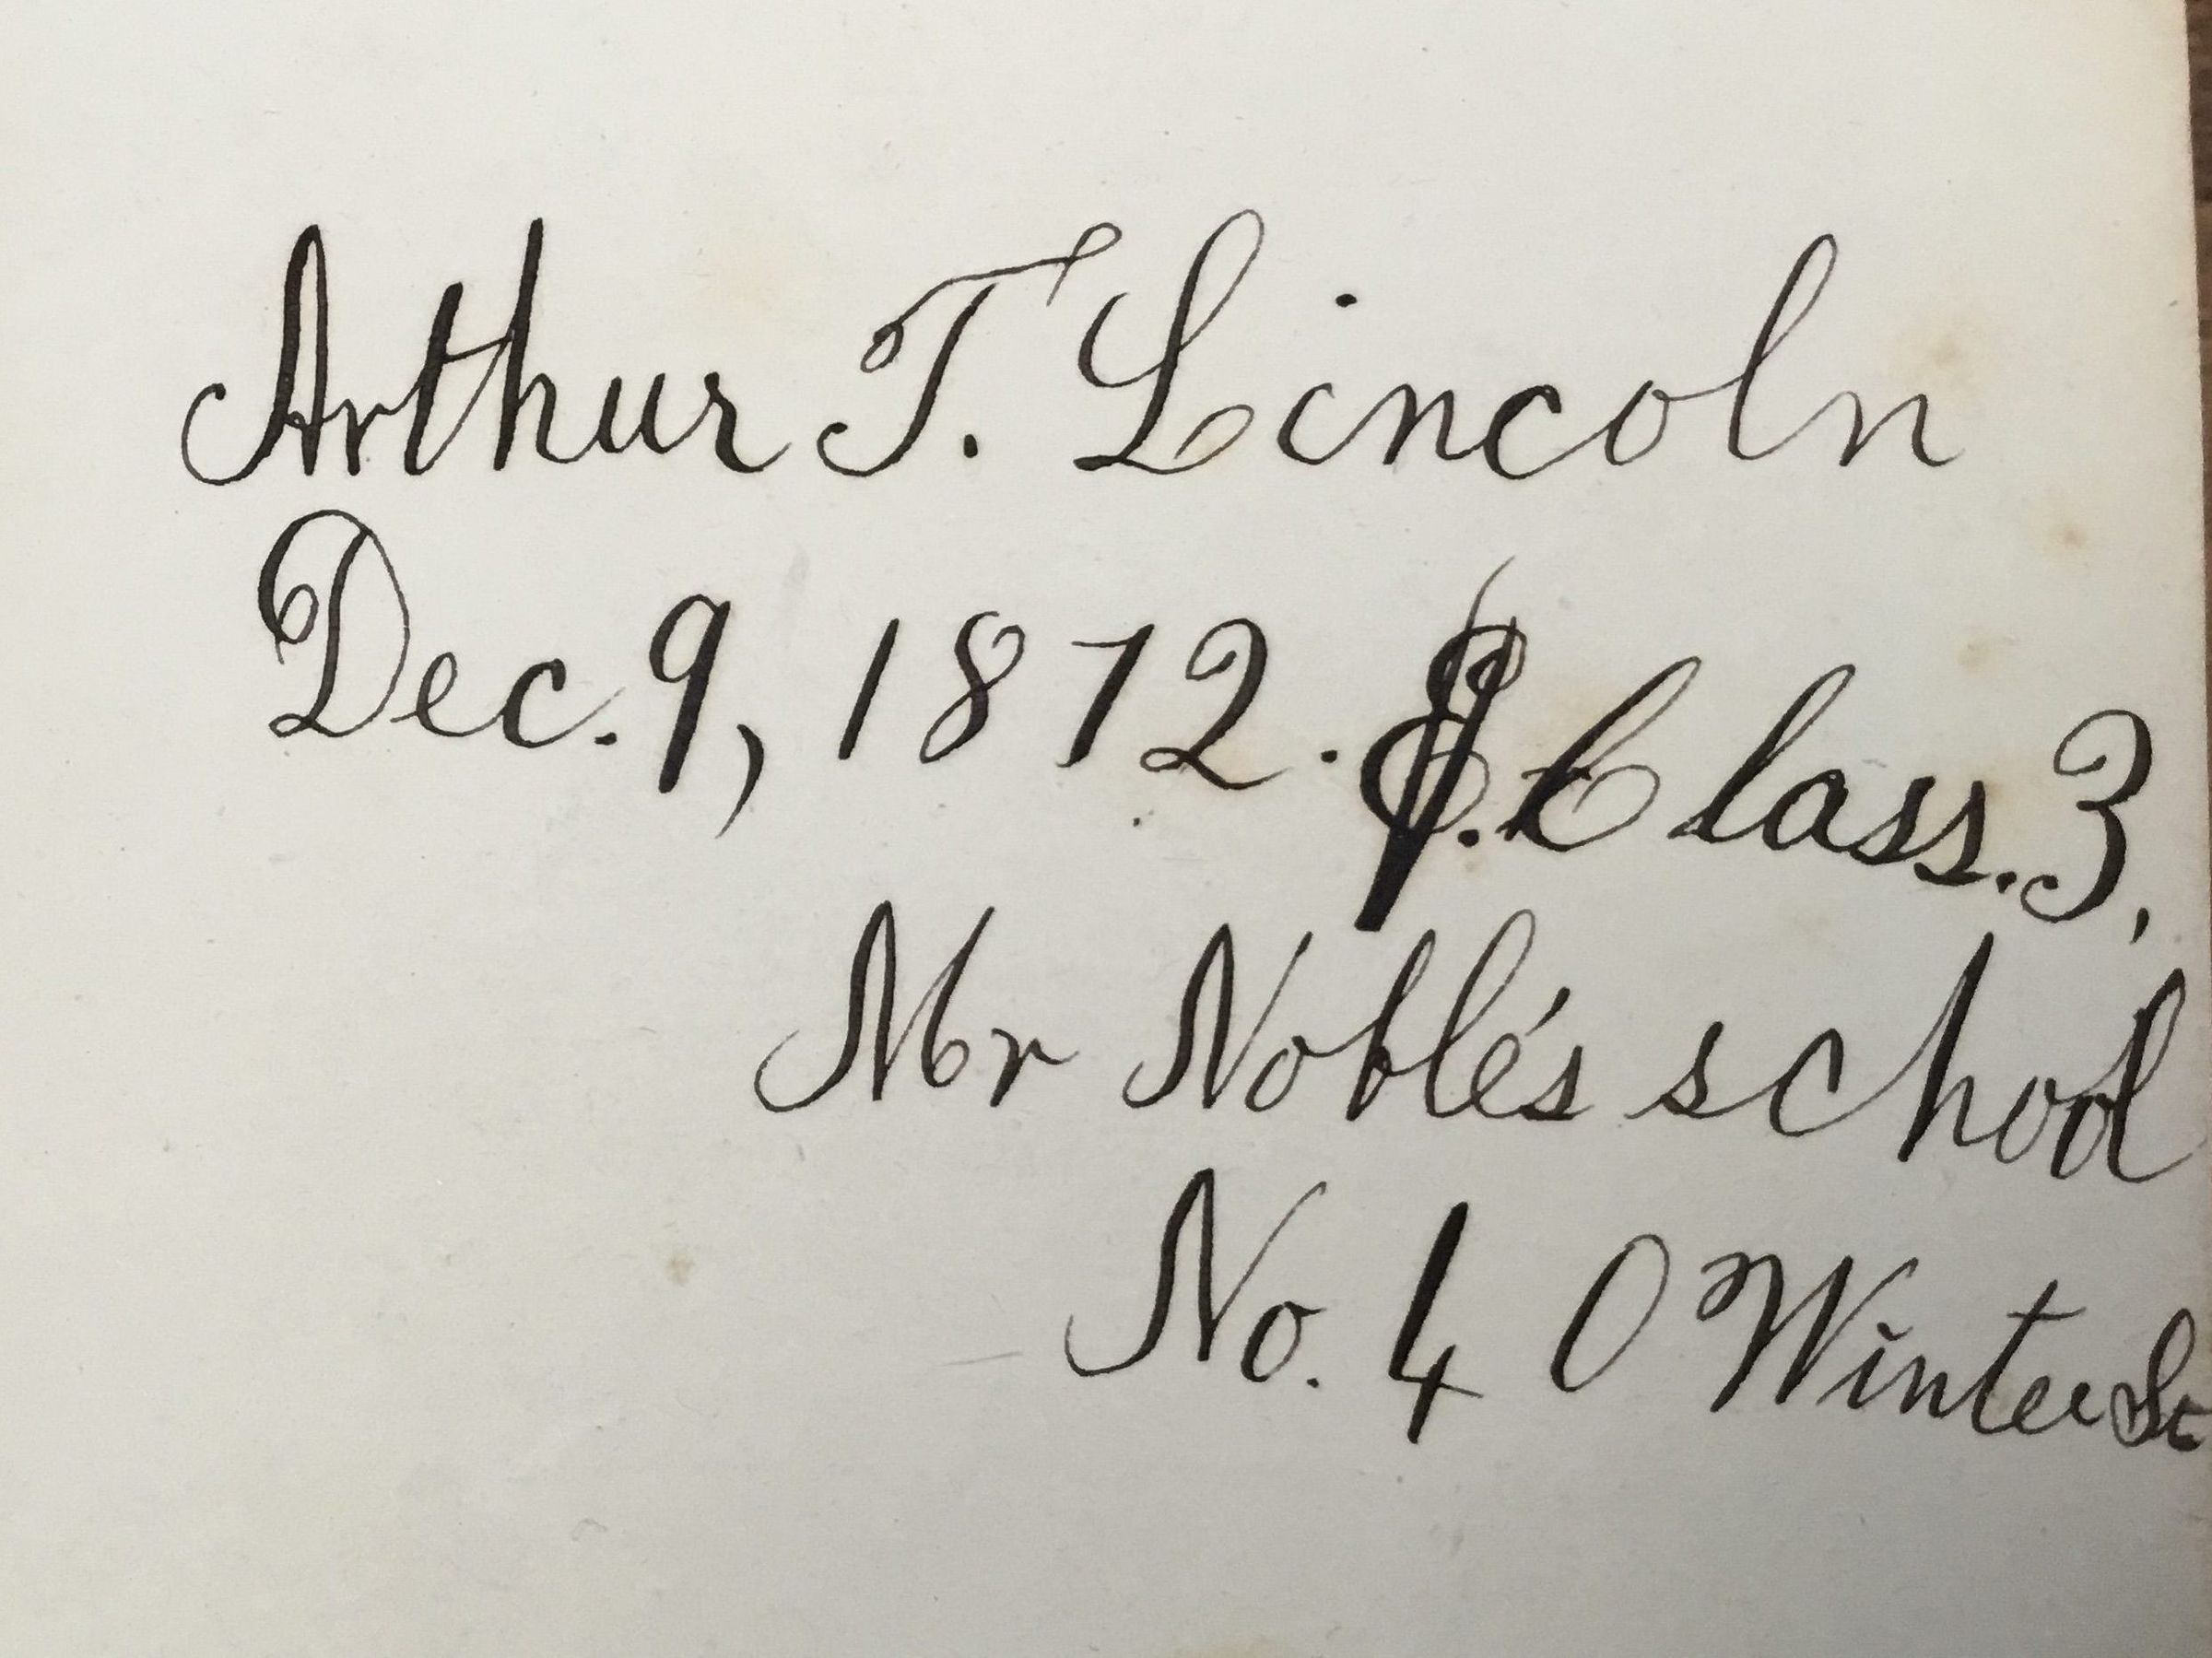 Arthur T. Lincoln
Dec. 9, 1872. Class. 3,
Mr Noble's school
No. 40 Winter St